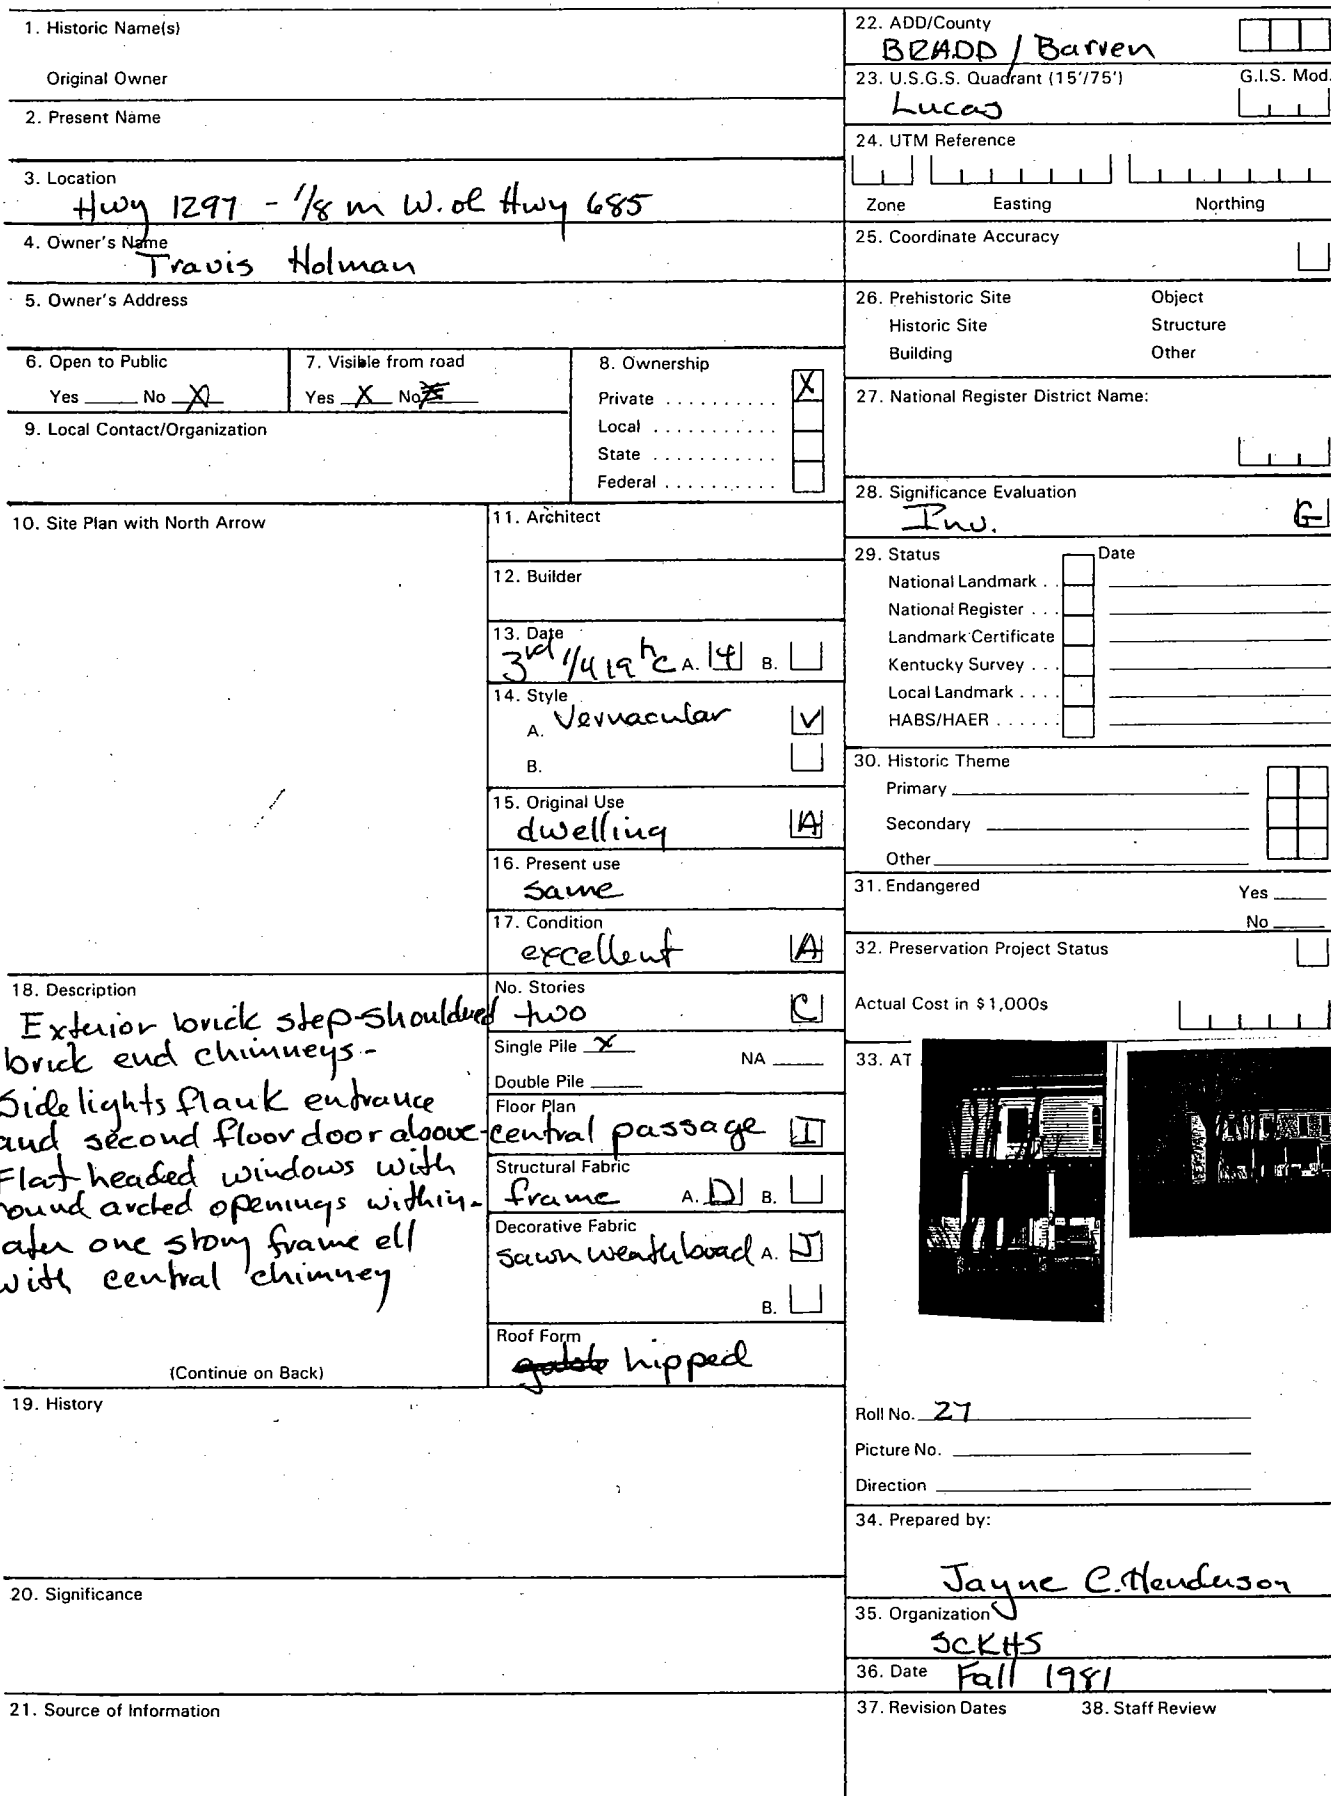 1. Historic Name(s)
Original Owner
2. Present Name
3. Location
Hwy 1297 - 1/8 m W. of Hwy 685
4. Owner's Name
Travis Holman
5. Owner's Address
6. Open to Public
Yes No X
7. Visible from road
Yes X No
8. Ownership
Private .......... X
Local ...........
State ...........
Federal ..........
9. Local Contact/Organization
10. Site Plan with North Arrow
11. Architect
12. Builder
13. Date
3rd 1/4 19th C A. 4 B.
14. Style
A. Vernacular V
B.
15. Original Use
dwelling A
16. Present use
same
17. Condition
excellent A
18. Description
Exterior brick step-shouldered
brick end chimneys-
Sidelights flank entrance
and second floor door above-
Flat headed windows with
ound arched openings within-
ater one story frame ell
with central chimney
(Continue on Back)
No. Stories
two C
Single Pile X NA
Double Pile
Floor Plan
central passage I
Structural Fabric
frame A. D B.
Decorative Fabric
sawn weathboard A. J
B.
Roof Form
hipped
19. History
20. Significance
21. Source of Information
22. ADD/County
BRADD / Barren
23. U.S.G.S. Quadrant (15'/75') G.I.S. Mod.
Lucas
24. UTM Reference
Zone Easting Northing
25. Coordinate Accuracy
26. Prehistoric Site Object
Historic Site Structure
Building Other
27. National Register District Name:
28. Significance Evaluation
Inv. G
29. Status Date
National Landmark . .
National Register . . .
Landmark Certificate
Kentucky Survey . . .
Local Landmark . . . .
HABS/HAER . . . . . .
30. Historic Theme
Primary
Secondary
Other
31. Endangered Yes
No
32. Preservation Project Status
Actual Cost in $1,000s
33. AT
Roll No. 27
Picture No.
Direction
34. Prepared by:
Jayne C. Henderson
35. Organization
SCKHS
36. Date Fall 1981
37. Revision Dates 38. Staff Review